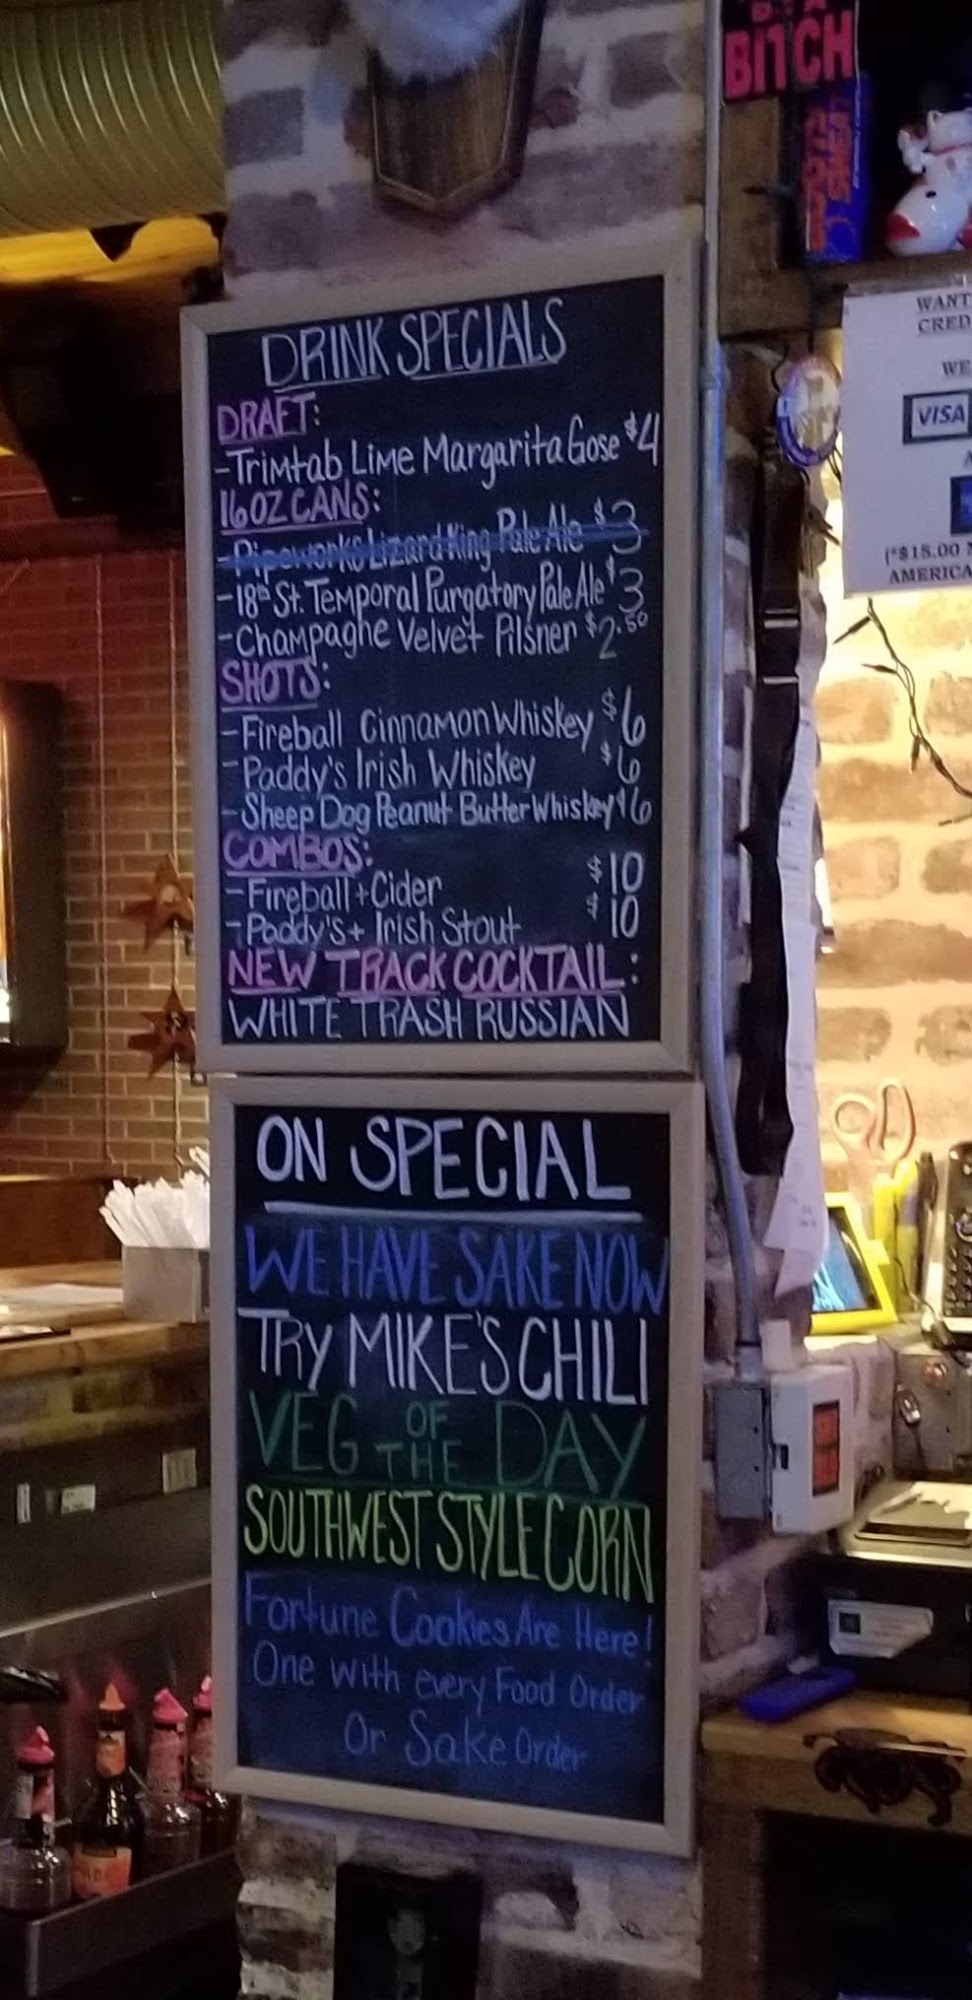 BITCH
DRINK SPECIALS
DRAFT:
-Trimtab Lime Margarita Gose $4
16OZ CANS:
-Pipeworks Lizard King Pale Ale $3
-18th St. Temporal Purgatory Pale Ale $3
-Champagne Velvet Pilsner $2.50
SHOTS:
-Fireball Cinnamon Whiskey $6
-Paddy's Irish Whiskey $6
-Sheep Dog Peanut Butter Whiskey $6
COMBOS:
-Fireball + Cider $10
-Paddy's + Irish Stout $10
NEW TRACK COCKTAIL:
WHITE TRASH RUSSIAN
ON SPECIAL
WE HAVE SAKE NOW
TRY MIKE'S CHILI
VEG OF THE DAY
SOUTHWEST STYLE CORN
Fortune Cookies Are Here!
One with every Food Order
Or Sake Order
WANT
CRED
WE
VISA
(*$15.00
AMERICA